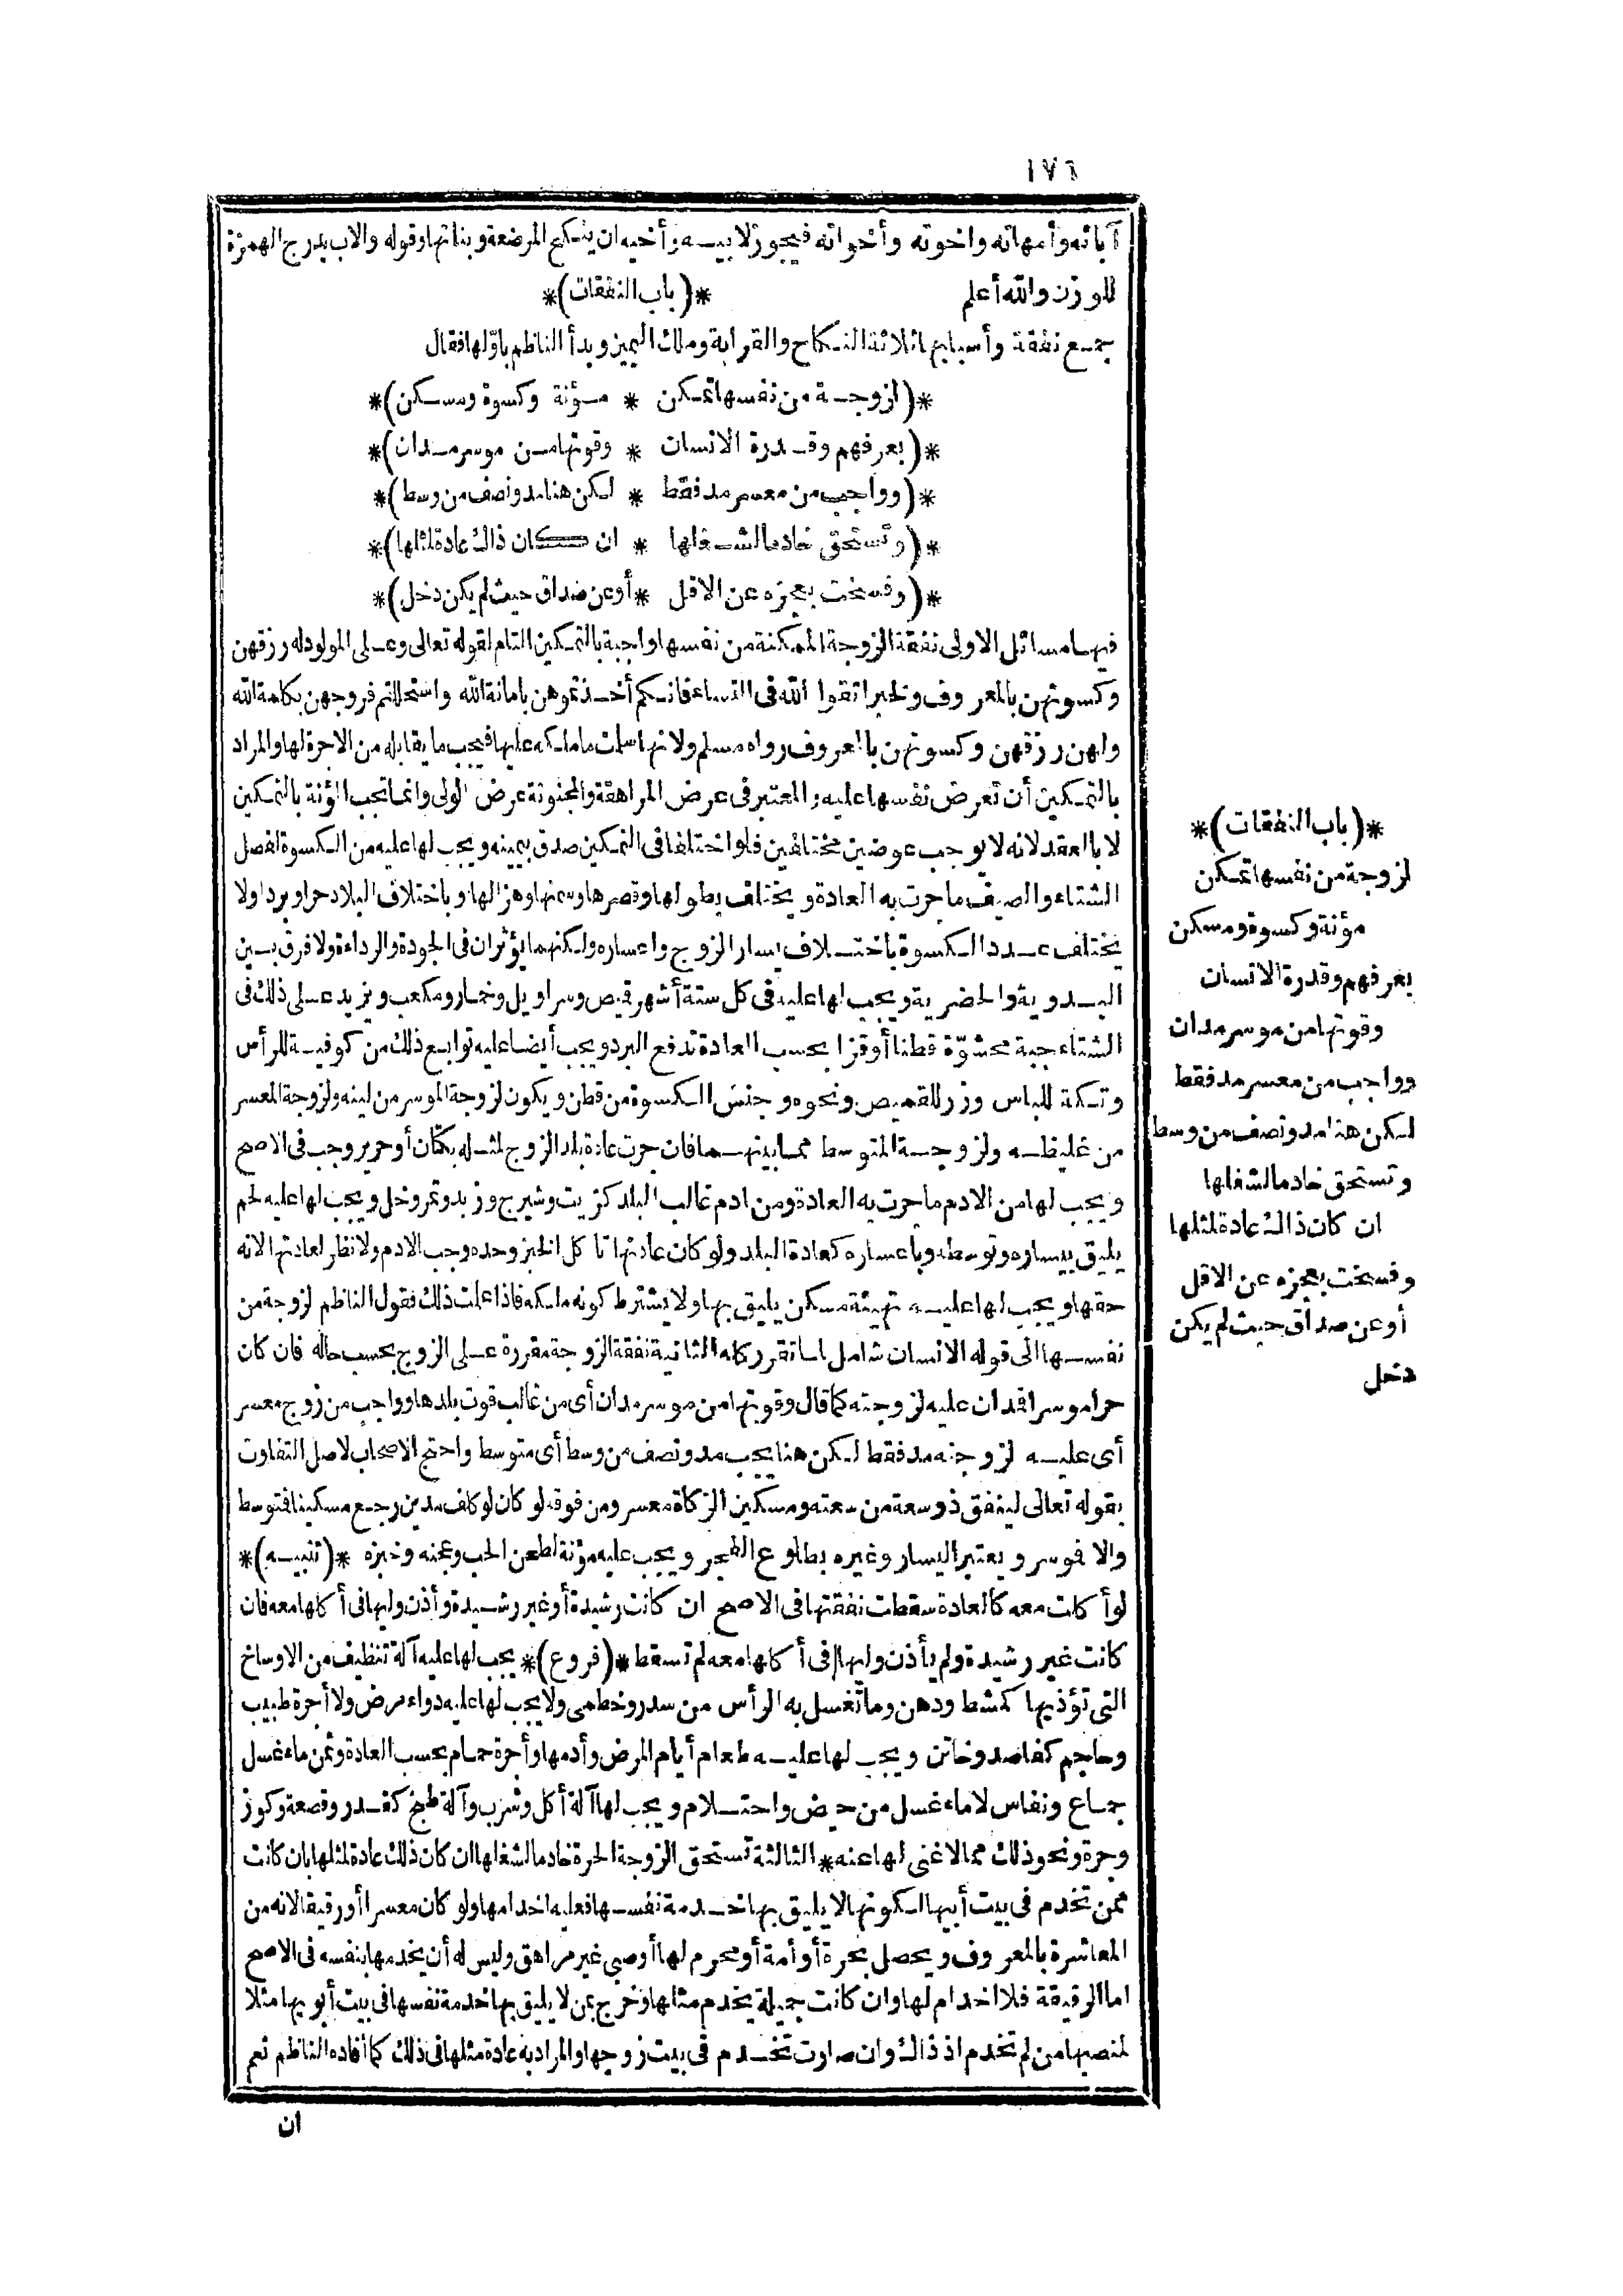 ١٧٦
آبائه وأمهاته واخوته وأخواته فيجوز لابيه وأخيه ان ينكح المرضعة وبناتها وقوله والاب بدرج الهمزة
للوزن والله أعلم *(باب النفقات)*
جمع نفقة وأسبابها ثلاثة النكاح والقرابة وملك اليمين وبدأ الناظم بأولها فقال
*(لزوجة من نفسها تمكن * مؤنة وكسوة ومسكن)*
*(بعرفهم وقدرة الانسان * وقوتها من موسر مدان)*
*(وواجب من معسر مد فقط * لكن هنا مد ونصف من وسط)*
*(وتستحق خادما لشغلها * ان كان ذاك عادة لمثلها)*
*(وفسخت بعجزه عن الاقل * أو عن صداق حيث لم يكن دخل)*
فيها مسائل الاولى نفقة الزوجة الممكنة من نفسها واجبة بالتمكين التام لقوله تعالى وعلى المولود له رزقهن
وكسوتهن بالمعروف ولخبر اتقوا الله فى النساء فانكم أخذتموهن بامانة الله واستحللتم فروجهن بكلمة الله
ولهن رزقهن وكسوتهن بالمعروف رواه مسلم ولانها سلمت ما ملكه عليها فيجب ما يقابله من الاجرة لها والمراد
بالتمكين أن تعرض نفسها عليه والمعتبر فى عرض المراهقة والمجنونة عرض الولى وانما تجب المؤنة بالتمكين
لا بالعقد لانه لا يوجب عوضين مختلفين فلو اختلفا فى التمكين صدق بيمينه ويجب لها عليه من الكسوة لفصل
الشتاء والصيف ما جرت به العادة ويختلف بطولها وقصرها وسمنها وهزالها وباختلاف البلاد حرا وبردا ولا
يختلف عدد الكسوة باختلاف يسار الزوج واعساره ولكنهما يؤثران فى الجودة والرداءة ولا فرق بين
البدوية والحضرية ويجب لها عليه فى كل ستة أشهر قميص وسراويل وخمار ومكعب ويزيد على ذلك فى
الشتاء جبة محشوّة قطنا أو قزا بحسب العادة تدفع البرد ويجب أيضا عليه توابع ذلك من كوفية للرأس
وتكة للباس وزر للقميص ونحوه وجنس الكسوة من قطن ويكون لزوجة الموسر من لينه ولزوجة المعسر
من غليظه ولزوجة المتوسط مما بينهما فان جرت عادة بلد الزوج لمثله بكتان أو حرير وجب فى الاصح
ويجب لها من الادم ما جرت به العادة ومن ادم غالب البلد كزيت وشيرج وزبد وتمر وخل ويجب لها عليه لحم
يليق بيساره وتوسطه وباعساره كعادة البلد ولو كان عادتها تأكل الخبز وحده وجب الادم ولا نظر لعادتها لانه
حقها ويجب لها عليه تهيئة مسكن يليق بها ولا يشترط كونه ملكه فاذا علمت ذلك فقول الناظم لزوجة من
نفسها الى قوله الانسان شامل لما تقرر كله الثانية نفقة الزوجة مقررة على الزوج بحسب حاله فان كان
حرا موسرا فمدان عليه لزوجته كما قال وقوتها من موسر مدان أى من غالب قوت بلدها وواجب من زوج معسر
أى عليه لزوجته مد فقط لكن هنا يجب مد ونصف من وسط أى متوسط واحتج الاصحاب لاصل التفاوت
بقوله تعالى لينفق ذو سعة من سعته ومسكين الزكاة معسر ومن فوقه لو كان لو كلف مدين رجع مسكينا فتوسط
والا فموسر ويعتبر اليسار وغيره بطلوع الفجر ويجب عليه مؤنة لطحن الحب وعجنه وخبزه *(تنبيه)*
لو أكلت معه كالعادة سقطت نفقتها فى الاصح ان كانت رشيدة أو غير رشيدة وأذن وليها فى أكلها معه فان
كانت غير رشيدة ولم يأذن وليها فى أكلها معه لم تسقط *(فروع)* يجب لها عليه آلة تنظيف من الاوساخ
التى تؤذيها كمشط ودهن وما تغسل به الرأس من سدر وخطمى ولا يجب لها عليه دواء مرض ولا أجرة طبيب
وحاجم كفاصد وخاتن ويجب لها عليه طعام أيام المرض وأدمها وأجرة حمام بحسب العادة وثمن ماء غسل
جماع ونفاس لا ماء غسل من حيض واحتلام ويجب لها آلة أكل وشرب وآلة طبخ كقدر وقصعة وكوز
وجرة ونحو ذلك مما لا غنى لها عنه * الثالثة تستحق الزوجة الحرة خادما لشغلها ان كان ذلك عادة لمثلها بان كانت
ممن تخدم فى بيت أبيها لكونها لا يليق بها خدمة نفسها فعليه اخدامها ولو كان معسرا أو رقيقا لانه من
المعاشرة بالمعروف ويحصل بحرة أو أمة أو محرم لها أو صبى غير مراهق وليس له أن يخدمها بنفسه فى الاصح
اما الرقيقة فلا اخدام لها وان كانت جميلة يخدم مثلها وخرج بمن لا يليق بها خدمة نفسها فى بيت أبويها مثلا
لمنصبها من لم تخدم اذ ذاك وان صارت تخدم فى بيت زوجها والمراد به عادة مثلها فى ذلك كما أفاده الناظم نعم
ان
*(باب النفقات)*
لزوجة من نفسها تمكن
مؤنة وكسوة ومسكن
بعرفهم وقدرة الانسان
وقوتها من موسر مدان
وواجب من معسر مد فقط
لكن هنا مد ونصف من وسط
وتستحق خادما لشغلها
ان كان ذاك عادة لمثلها
وفسخت بعجزه عن الاقل
أو عن صداق حيث لم يكن
دخل